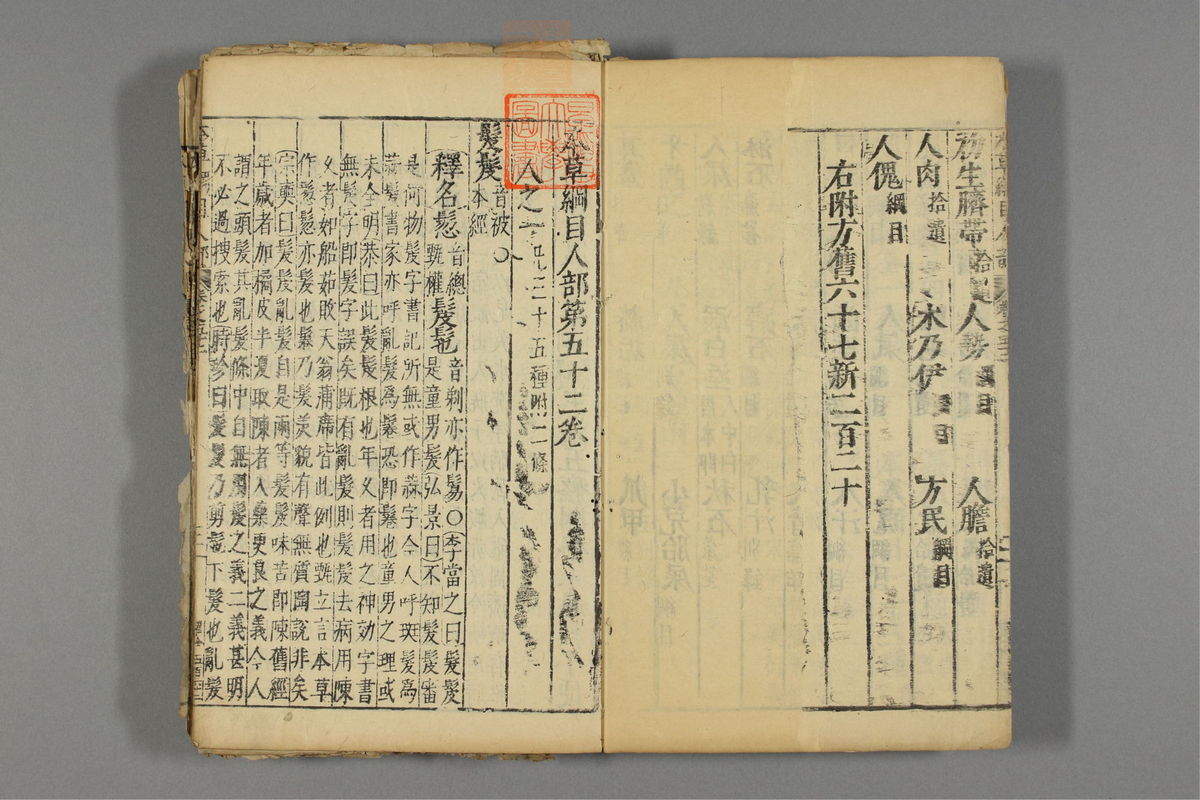 初生臍帶拾遺 人勢綱目 人膽拾遺
人肉拾遺 木乃伊綱目 方民綱目
人傀綱目
右附方舊六十七新二百二十
本草綱目人部第五十二卷
人之一凡三十五種附二條
髮髲音被本經
釋名鬆音總甄權髲髢音剃亦作鬄○李當之曰髮髲
是童男髮弘景曰不知髮髲審
是何物髮字書記所無或作蒜字今人呼斑髮為
蒜髮書家亦呼亂髮為鬈恐即鬈也童男之理或
未全明恭曰此髮髲根也年久者用之神効字書
無髲字即髮字誤矣既有亂髮則髮髲去病用陳
久者如船茹敗天翁蒲席皆此例也甄立言本草
作鬈鬈亦髲也鬈乃髮美貌有聲無質陶說非矣
宗奭曰髮髲亂髮自是兩等髮髲味苦即陳舊經
年歲者如橘皮半夏取陳者入藥更良之義今人
謂之頭髮其亂髮條中自無用髮之義二義甚明
不必過搜索也時珍曰髮髲乃剪髢下髮也亂髮